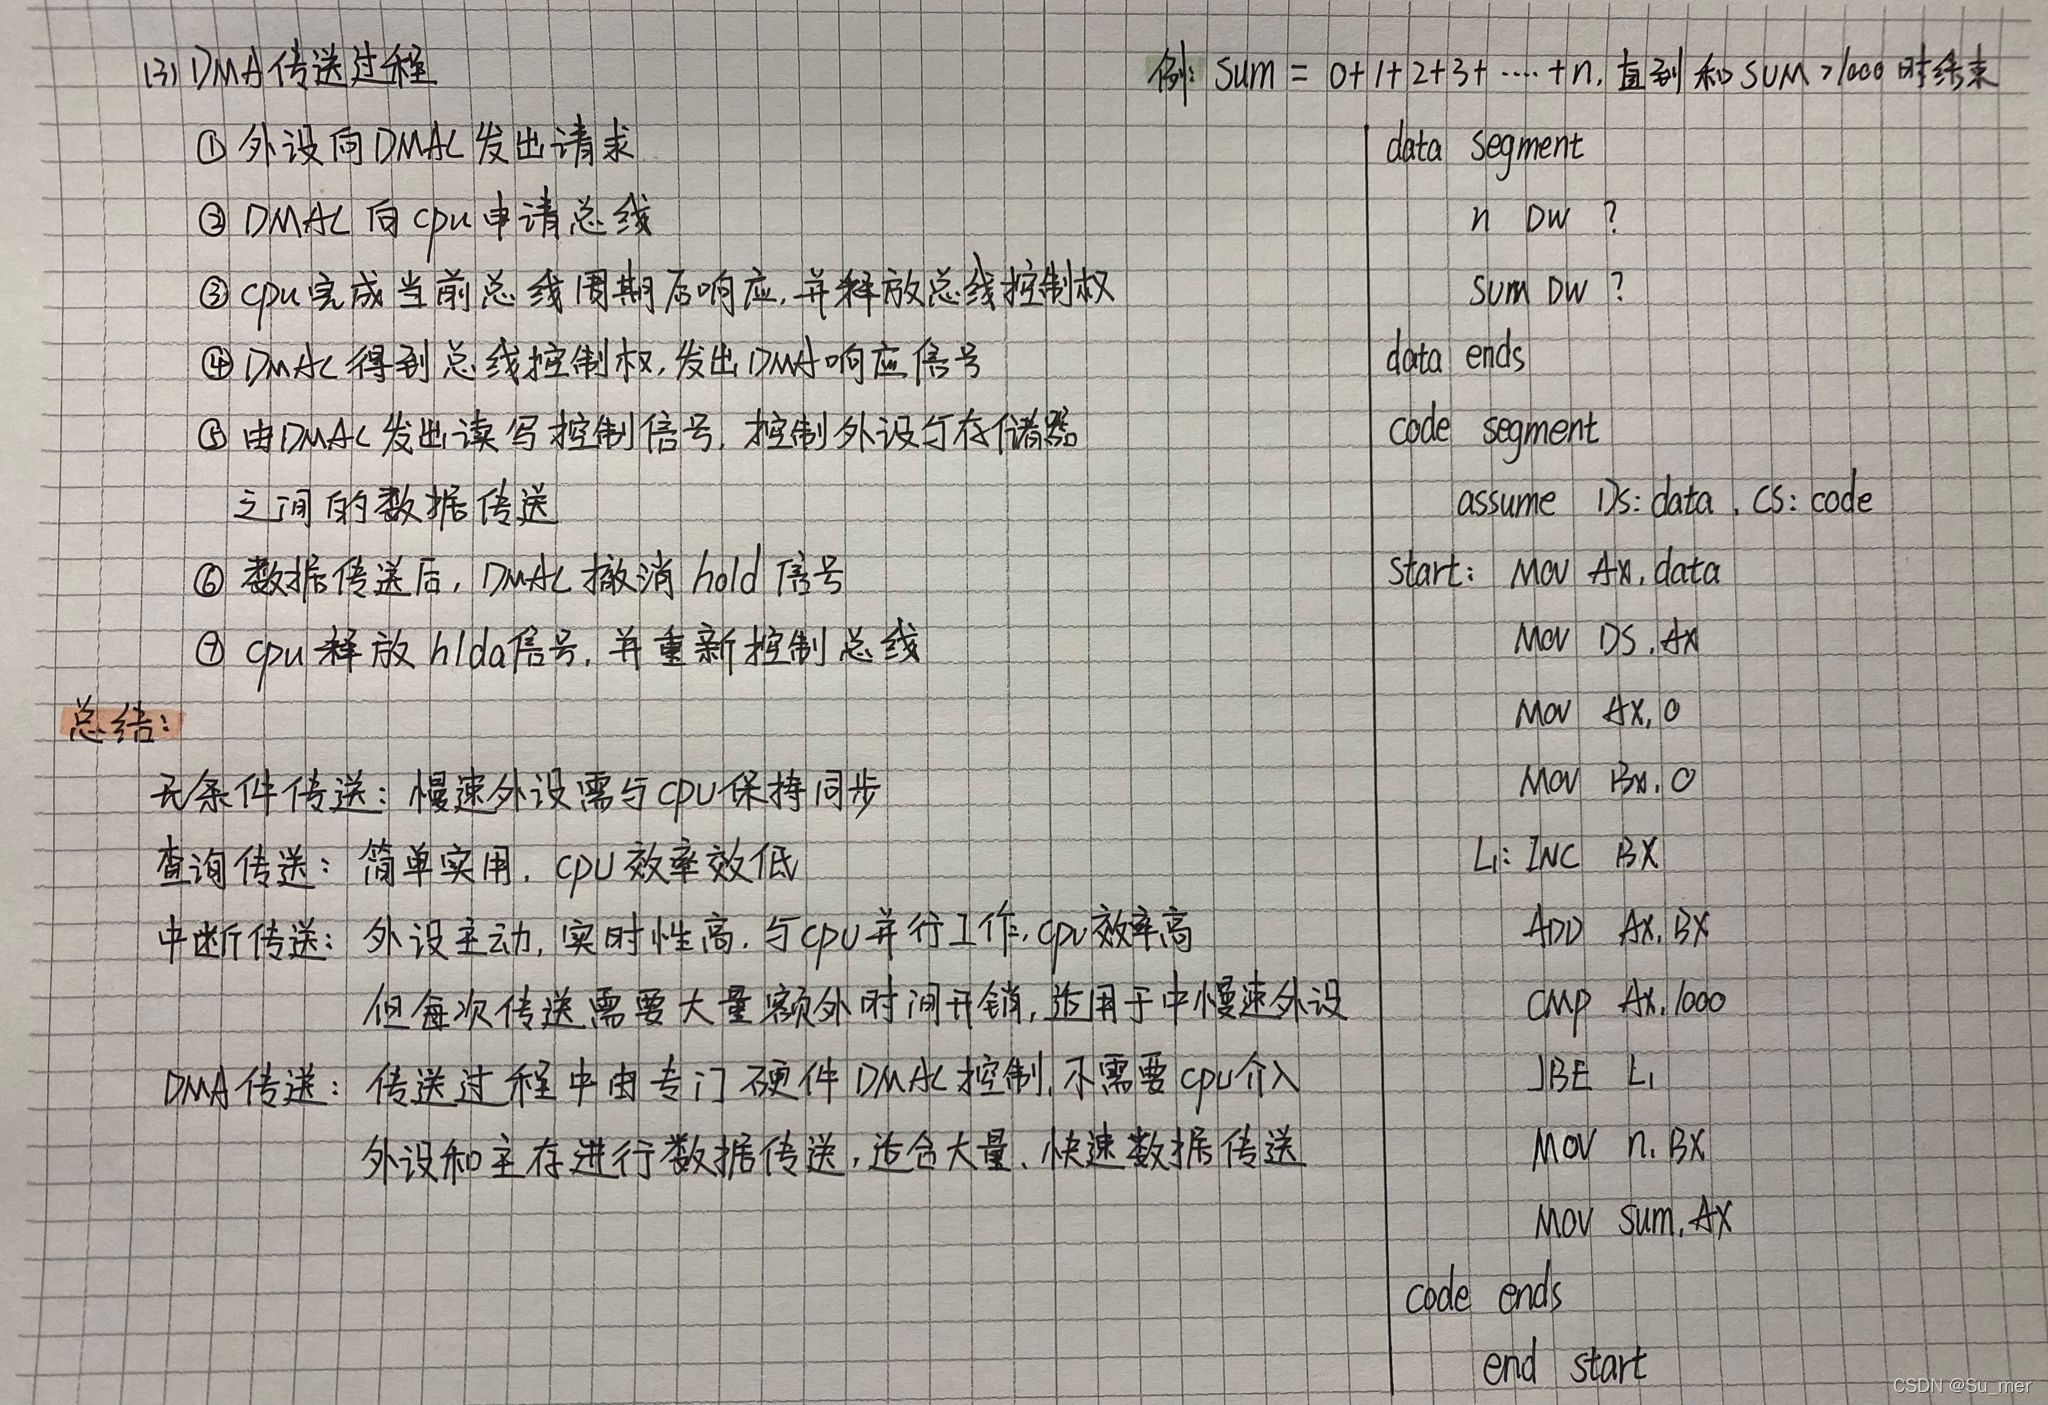 (3) DMA传送过程
① 外设向DMAC发出请求
② DMAC向cpu申请总线
③ cpu完成当前总线周期后响应,并释放总线控制权
④ DMAC得到总线控制权,发出DMA响应信号
⑤ 由DMAC发出读写控制信号,控制外设与存储器
之间的数据传送
⑥ 数据传送后,DMAC撤消hold信号
⑦ cpu释放hlda信号,并重新控制总线
总结:
无条件传送:慢速外设需与cpu保持同步
查询传送:简单实用,cpu效率效低
中断传送:外设主动,实时性高,与cpu并行工作,cpu效率高
但每次传送需要大量额外时间开销,适用于中慢速外设
DMA传送:传送过程中由专门硬件DMAC控制,不需要cpu介入
外设和主存进行数据传送,适合大量、快速数据传送
例: Sum = 0+1+2+3+....+n,直到和SUM>1000时结束
data segment
n DW ?
sum DW ?
data ends
code segment
assume DS:data, CS:code
start: MOV AX,data
MOV DS,AX
MOV AX,0
MOV BX,0
L1: INC BX
ADD AX,BX
CMP AX,1000
JBE L1
MOV n,BX
MOV sum,AX
code ends
end start
CSDN @Su_mer